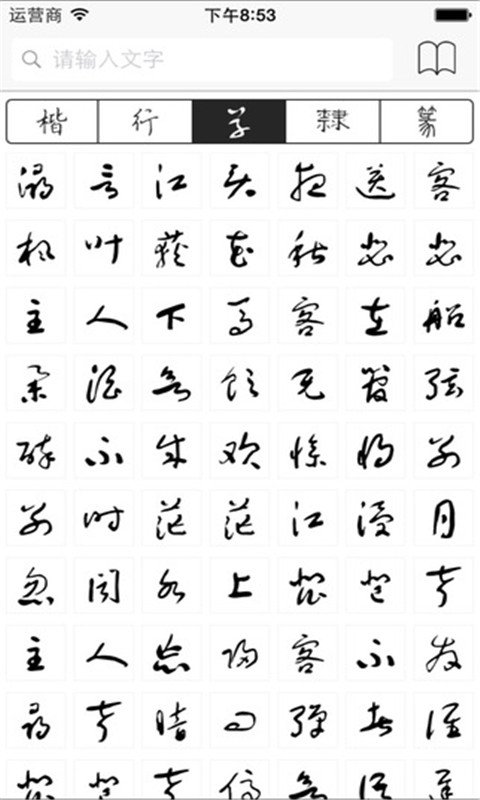 运营商 下午8:53
请输入文字
楷 行 草 隸 篆
浔阳江头夜送客
枫叶荻花秋瑟瑟
主人下马客在船
举酒欲饮无管弦
醉不成欢惨将别
别时茫茫江浸月
忽闻水上琵琶声
主人忘归客不发
寻声暗问弹者谁
琵琶声停欲语迟